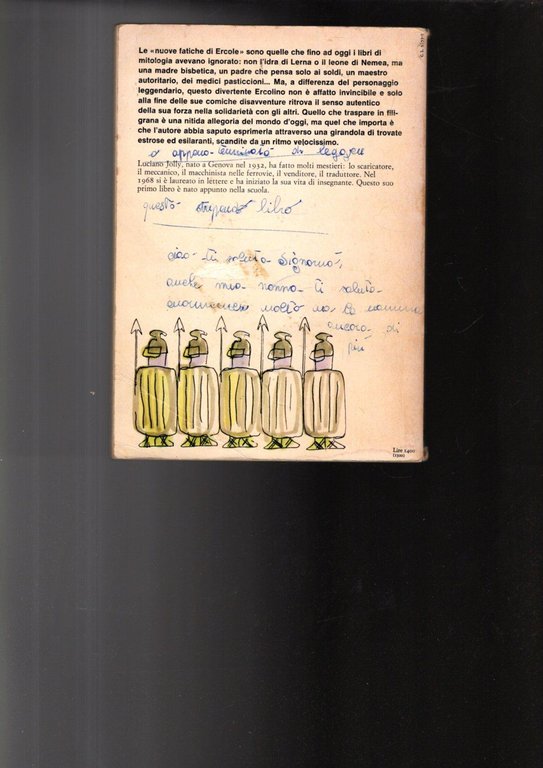 Le «nuove fatiche di Ercole» sono quelle che fino ad oggi i libri di
mitologia avevano ignorato: non l'idra di Lerna o il leone di Nemea, ma
una madre bisbetica, un padre che pensa solo ai soldi, un maestro
autoritario, dei medici pasticcioni... Ma, a differenza del personaggio
leggendario, questo divertente Ercolino non è affatto invincibile e solo
alla fine delle sue comiche disavventure ritrova il senso autentico
della sua forza nella solidarietà con gli altri. Quello che traspare in fili-
grana è una nitida allegoria del mondo d'oggi, ma quel che importa è
che l'autore abbia saputo esprimerla attraverso una girandola di trovate
estrose ed esilaranti, scandite da un ritmo velocissimo.
di leggere
Luciano Jolly, nato a Genova nel 1932, ha fatto molti mestieri: lo scaricatore,
il meccanico, il macchinista nelle ferrovie, il venditore, il traduttore. Nel
1968 si è laureato in lettere e ha iniziato la sua vita di insegnante. Questo suo
primo libro è nato appunto nella scuola.
questo stupendo libro
ciao ti saluto
anche mia nonna ti saluta
molto ma la mamma
ancora di
più
Lire 1400
(1320)